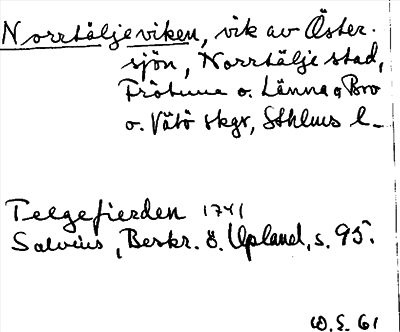 Norrtäljeviken, vik av Öster-
sjön, Norrtälje stad,
Frötuna o. Länna o Bro
o. Vätö skgr, Sthlms l.
Teegefierden 1741
Salvius, Beskr. ö. Upland, s. 95.
W.E. 61